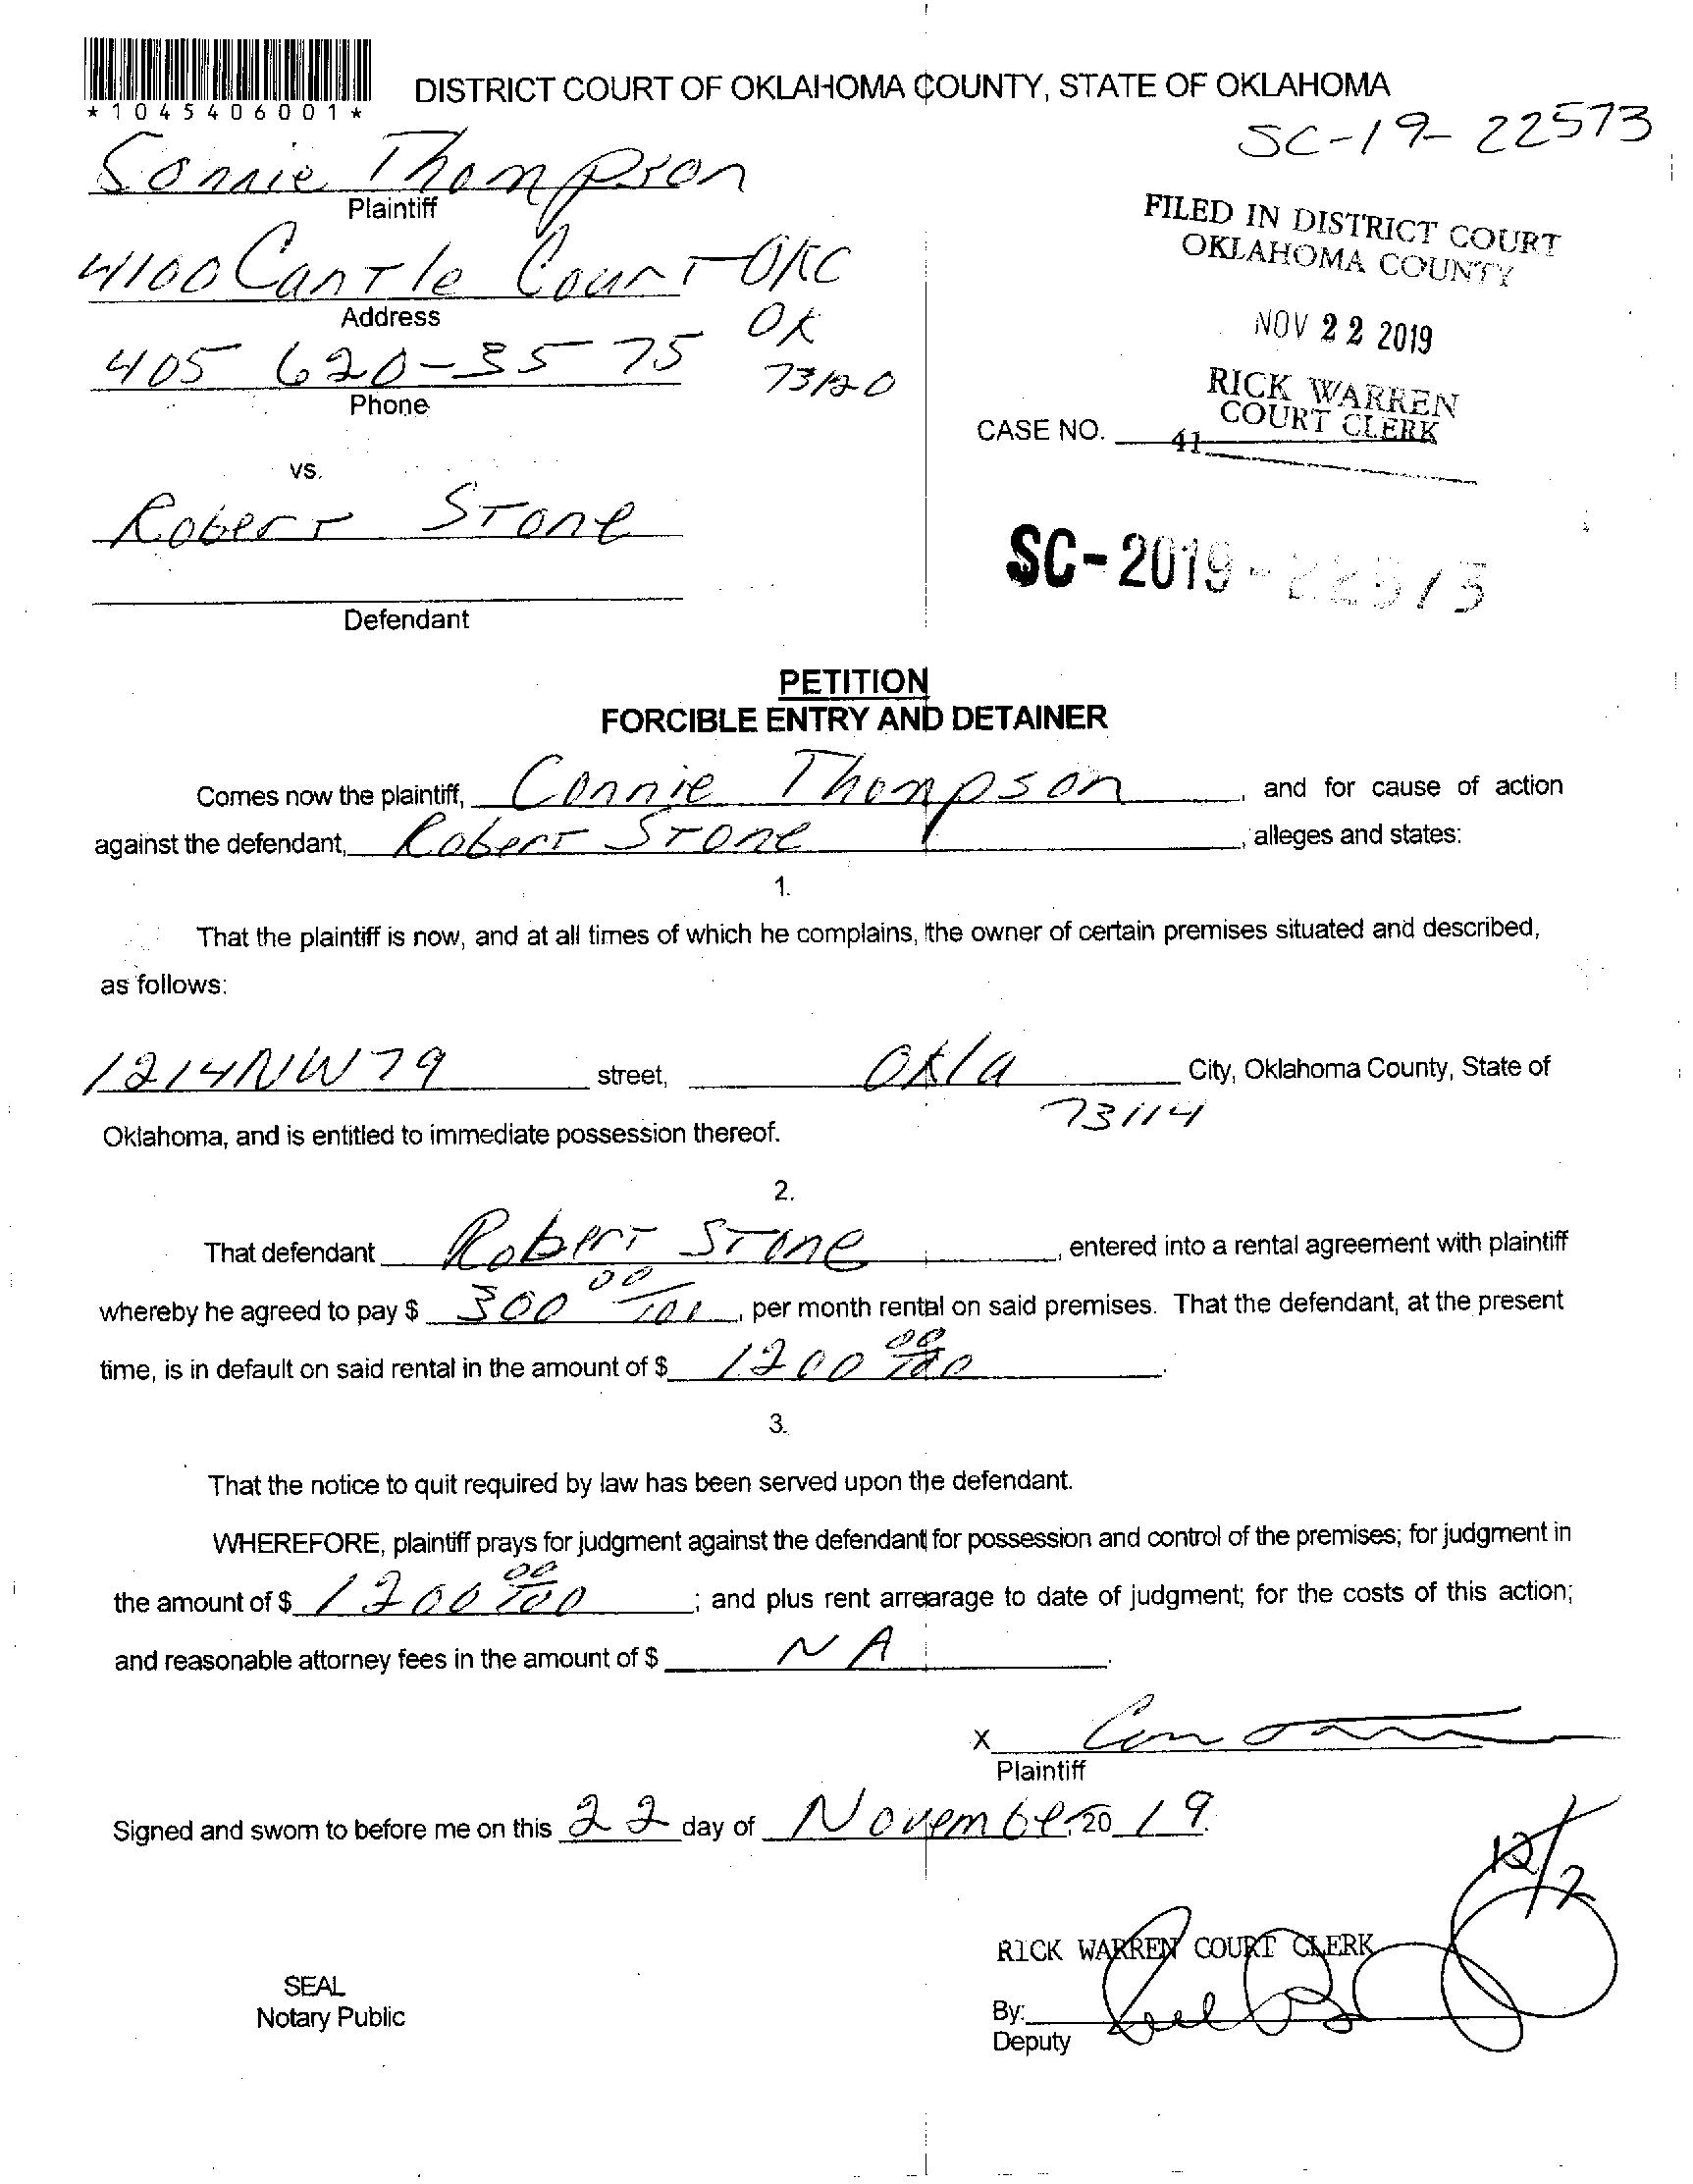 *1045406001*
DISTRICT COURT OF OKLAHOMA COUNTY, STATE OF OKLAHOMA
SC-19-22573
Connie Thompson
Plaintiff
FILED IN DISTRICT COURT
OKLAHOMA COUNTY
4100 Cantle Court OKC
Address
OK
73120
NOV 22 2019
405 620-3575
Phone
RICK WARREN
COURT CLERK
CASE NO.
41
vs.
Robert Stone
SC-2019-22573
Defendant
PETITION
FORCIBLE ENTRY AND DETAINER
Comes now the plaintiff, Connie Thompson, and for cause of action
against the defendant, Robert Stone, alleges and states:
1.
That the plaintiff is now, and at all times of which he complains, the owner of certain premises situated and described,
as follows:
1214 NW 79 street, Okla City, Oklahoma County, State of
73114
Oklahoma, and is entitled to immediate possession thereof.
2.
That defendant Robert Stone, entered into a rental agreement with plaintiff
whereby he agreed to pay $ 300 00/100, per month rental on said premises. That the defendant, at the present
time, is in default on said rental in the amount of $ 1200 00/100.
3.
That the notice to quit required by law has been served upon the defendant.
WHEREFORE, plaintiff prays for judgment against the defendant for possession and control of the premises; for judgment in
the amount of $ 1200 00/100; and plus rent arrearage to date of judgment; for the costs of this action;
and reasonable attorney fees in the amount of $ NA.
X
Plaintiff
Signed and sworn to before me on this 22 day of November, 20 19.
12/2
RICK WARREN COURT CLERK
SEAL
Notary Public
By:
Deputy